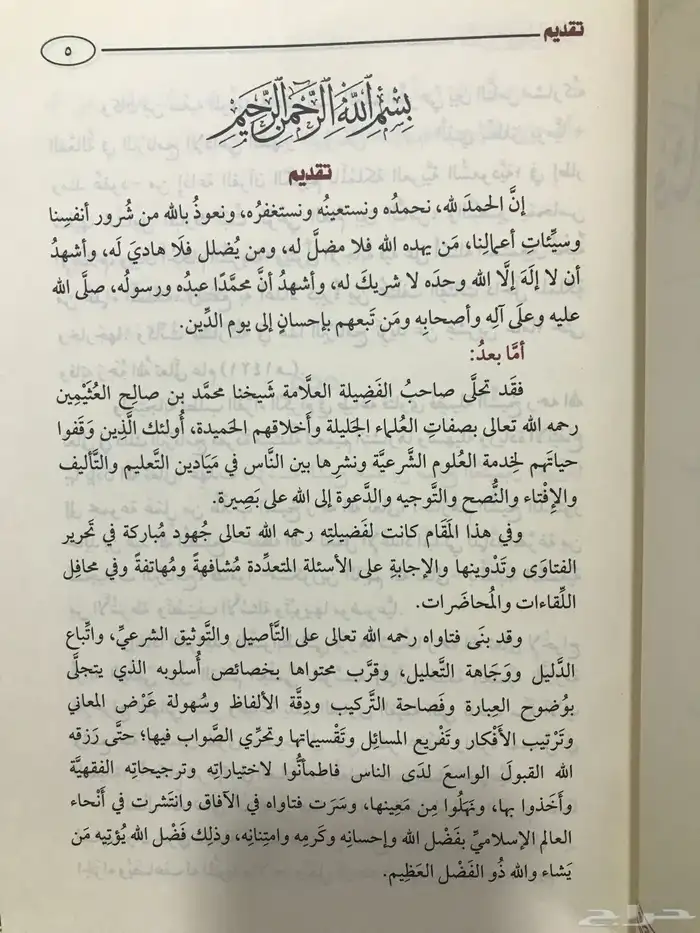 تقديم
٥
بِسْمِ اللَّهِ الرَّحْمَنِ الرَّحِيمِ
تقديم
إنَّ الحمدَ لله، نحمدُه ونستعينُه ونستغفرُه، ونعوذُ بالله من شُرور أنفسِنا
وسيِّئاتِ أعمالِنا، مَن يهده الله فلا مضلَّ له، ومن يُضلل فلَا هاديَ لَه، وأشهدُ
أن لا إلَهَ إلَّا الله وحدَه لا شريكَ له، وأشهدُ أنَّ محمَّدًا عبدُه ورسولُه، صلَّى الله
عليه وعلَى آلِه وأصحابِه ومَن تَبعهم بإحسانٍ إلى يوم الدِّين.
أمَّا بعدُ:
فقَد تحلَّى صاحبُ الفَضِيلة العلَّامة شَيخنا محمَّد بن صالِح العُثَيْمِين
رحمه الله تعالى بصفاتِ العُلماء الجَليلة وأَخلاقهم الحَميدة، أُولئك الَّذِين وَقَفوا
حياتَهم لخِدمة العُلوم الشَّرعيَّة ونشرِها بين النَّاس في مَيَادين التَّعليم والتَّأليف
والإِفْتاء والنُّصح والتَّوجيه والدَّعوة إلى الله على بَصِيرة.
وفي هذا المَقَام كانت لفَضيلتِه رحمه الله تعالى جُهود مُباركة في تَحرير
الفتاوَى وتَدْوينها والإجابةِ على الأسئلة المتعدِّدة مُشافهةً ومُهاتفةً وفي محافِل
اللِّقاءات والمُحاضَرات.
وقد بنَى فتاواه رحمه الله تعالى على التَّأصيل والتَّوثيق الشرعيِّ، واتِّباع
الدَّليل ووَجَاهة التَّعليل، وقرَّب محتواها بخصائص أُسلوبه الذي يتجلَّى
بوُضوح العِبارة وفَصاحة التَّركيب ودِقَّة الألفاظ وسُهولة عَرْض المعاني
وتَرْتيب الأَفْكار وتَفْريع المسائِل وتَقْسيماتها وتحرِّي الصَّواب فيها؛ حتَّى رَزقه
الله القبولَ الواسعَ لدَى الناس فاطمأنُّوا لاختياراتِه وترجيحاتِه الفقهيَّة
وأَخَذوا بها، ونَهَلُوا مِن مَعِينها، وسَرَت فتاواه في الآفاق وانتَشرت في أَنْحاء
العالم الإسلاميِّ بفَضْل الله وإحسانِه وكَرمِه وامتِنانِه، وذلِك فَضْل الله يُؤتِيه مَن
يَشاء والله ذُو الفَضْل العَظِيم.
حراج